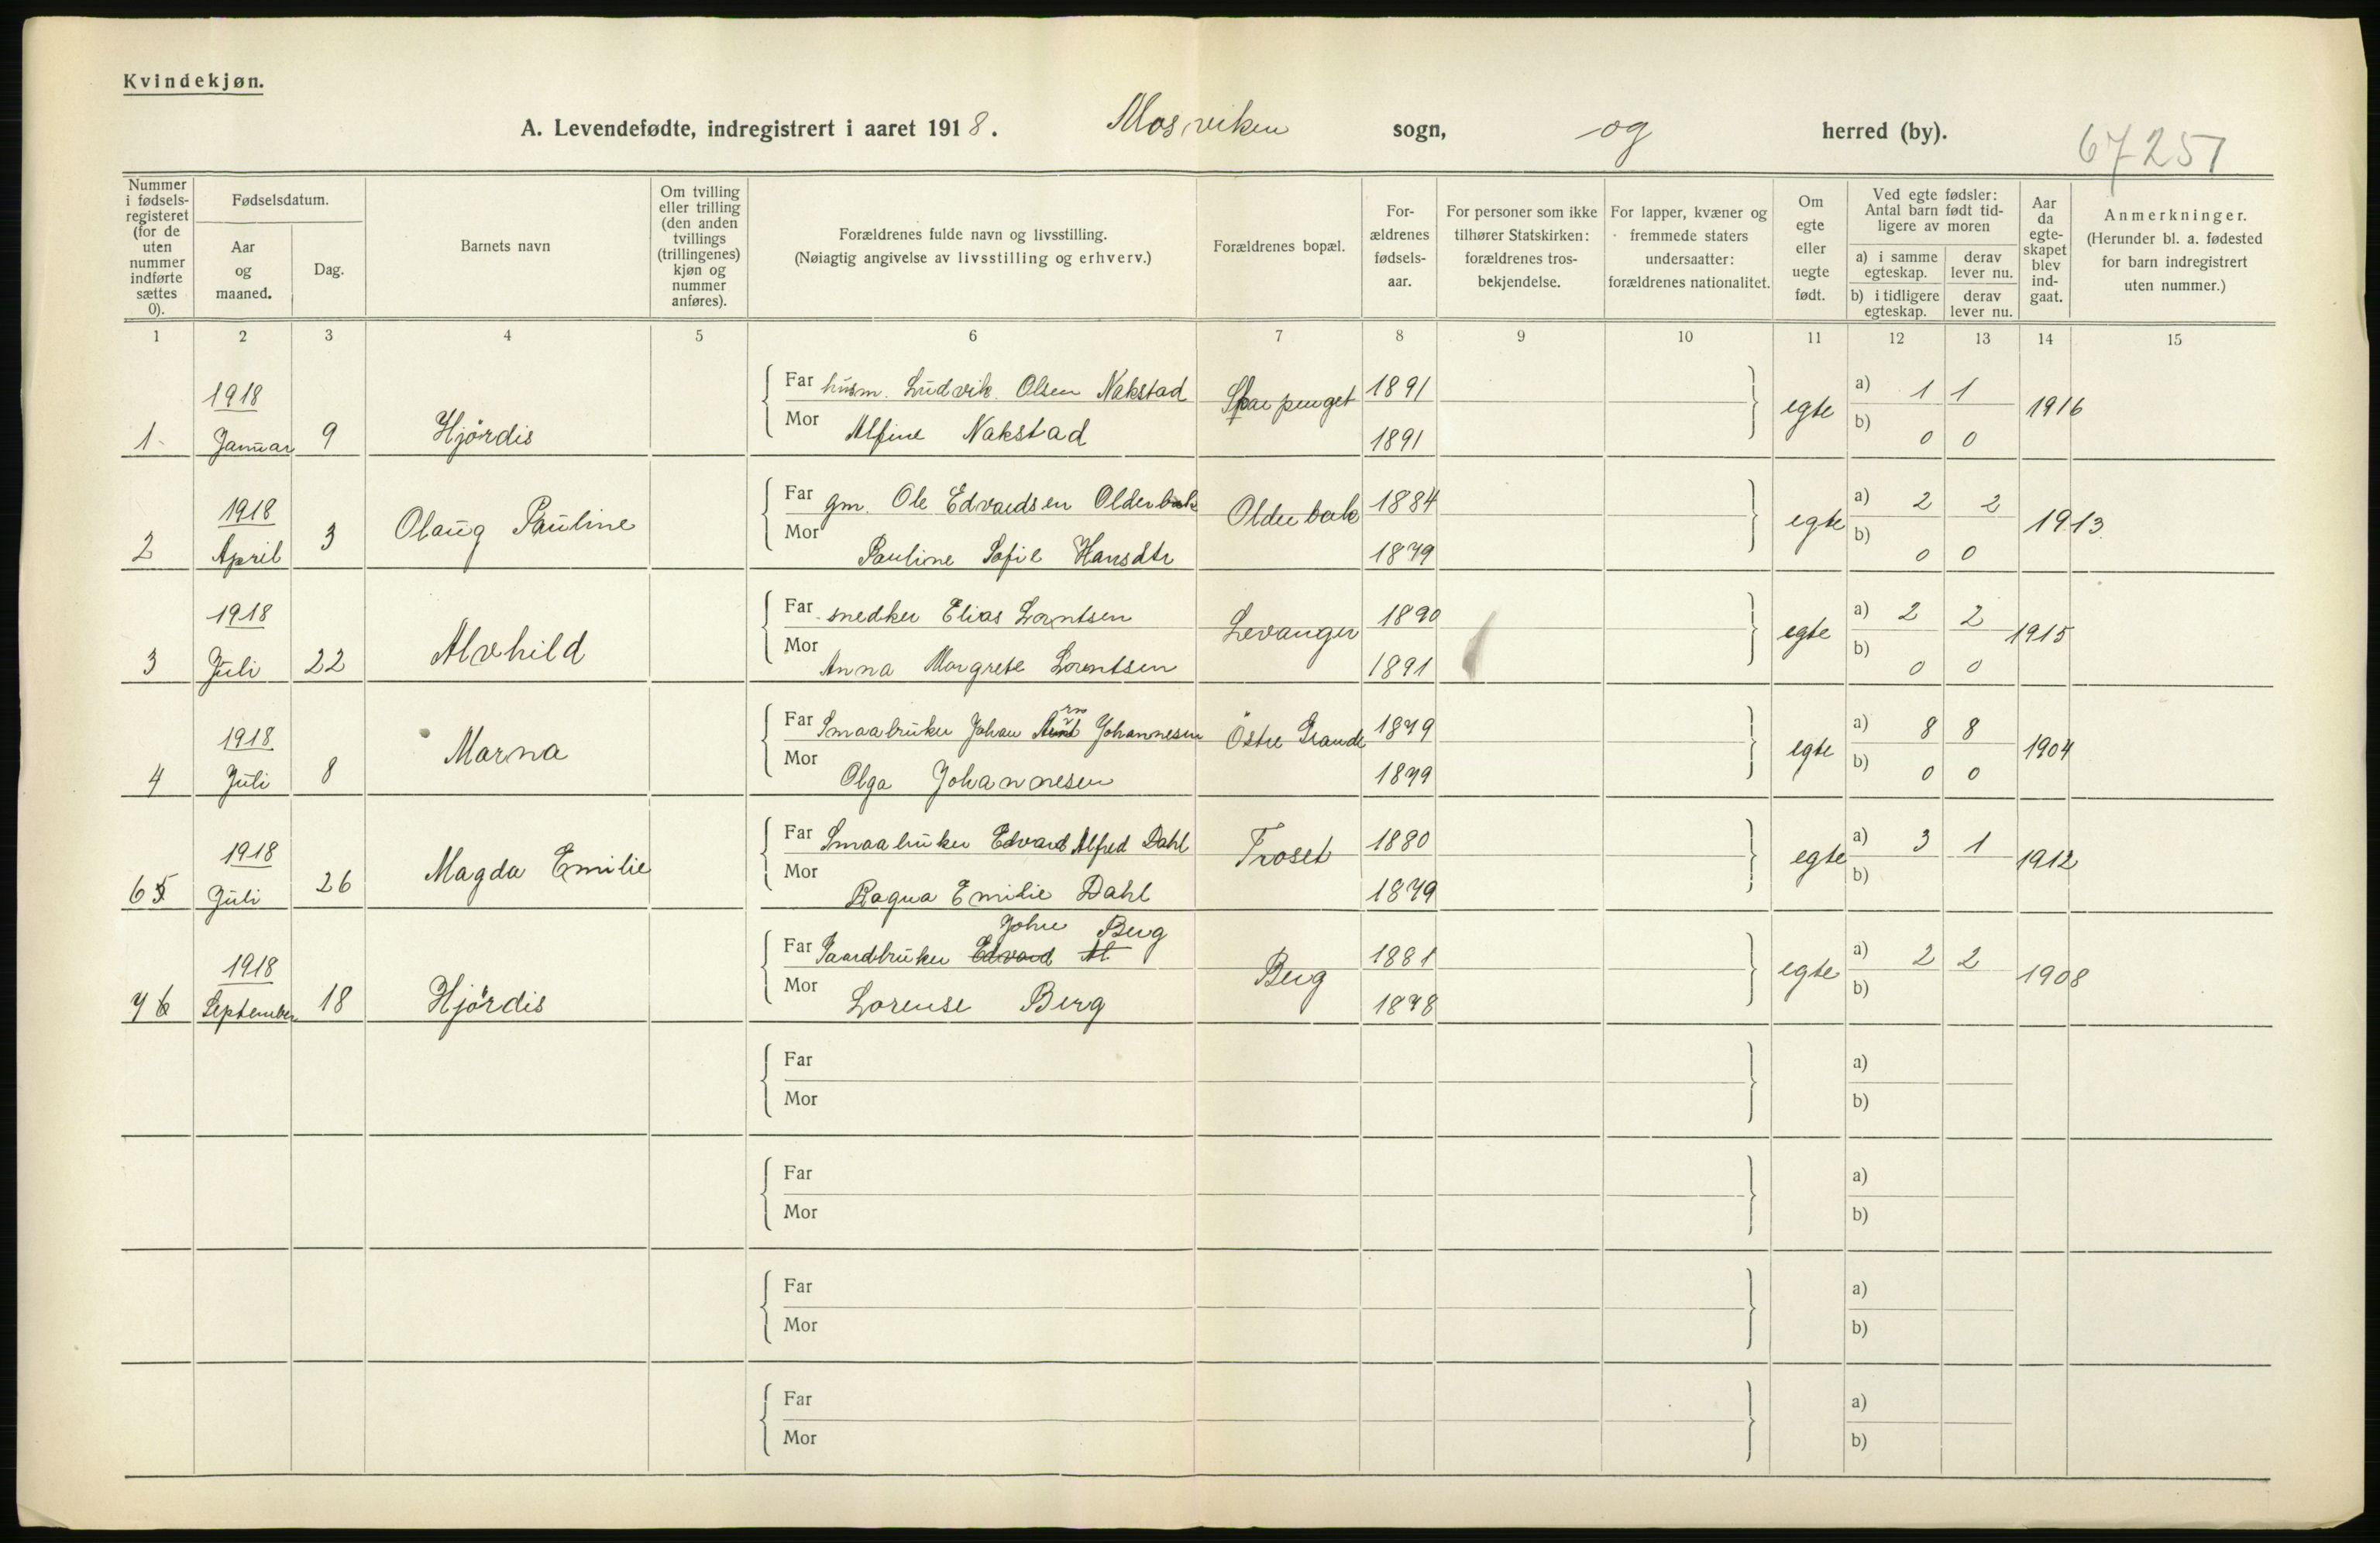 Kvindekjøn.
A. Levendefødte, indregistrert i aaret 1918. Mosviken sogn, og herred (by).
67251
Nummer i fødsels-registeret (for de uten nummer indførte sættes 0).
Fødselsdatum.
Aar og maaned.
Dag.
Barnets navn
Om tvilling eller trilling (den anden tvillings (trillingenes) kjøn og nummer anføres).
Forældrenes fulde navn og livsstilling.
(Nøiagtig angivelse av livsstilling og erhverv.)
Forældrenes bopæl.
For-ældrenes fødsels-aar.
For personer som ikke tilhører Statskirken: forældrenes tros-bekjendelse.
For lapper, kvæner og fremmede staters undersaatter: forældrenes nationalitet.
Om egte eller uegte født.
Ved egte fødsler: Antal barn født tid-ligere av moren
a) i samme egteskap.
derav lever nu.
b) i tidligere egteskap.
derav lever nu.
Aar da egte-skapet blev ind-gaat.
Anmerkninger.
(Herunder bl. a. fødested for barn indregistrert uten nummer.)
1 2 3 4 5 6 7 8 9 10 11 12 13 14 15
1918 Far husm. Ludvik Olsen Nakstad 1891 a) 1 1
1 Januar 9 Hjördis Mor Alfine Nakstad 1891 egte b) 0 0 1916
1918 Far gm. Ole Edvardsen Olderbak Olderbak 1884 a) 2 2
2 April 3 Olaug Pauline Mor Pauline Sofie Hansdtr 1879 egte b) 0 0 1913
1918 Far snedker Elias Lorntsen Levanger 1890 a) 2 2
3 Juli 22 Alvhild Mor Anna Margrete Lorentsen 1891 egte b) 0 0 1915
1918 Far Smaabruker Johan Johannesen Östre 1879 a) 8 8
4 Juli 8 Marna Mor Olga Johannesen 1879 egte b) 0 0 1904
1918 Far Smaabruker Edvard Alfred Dahl Troset 1880 a) 3 1
6 5 Juli 26 Magda Emilie Mor Ragna Emilie Dahl 1879 egte b) 1912
John Berg
1918 Far Gaardbruker Edvard Al Berg 1881 a) 2 2
7 6 September 18 Hjördis Mor Lorense Berg 1878 egte b) 1908
Far a)
Mor b)
Far a)
Mor b)
Far a)
Mor b)
Far a)
Mor b)